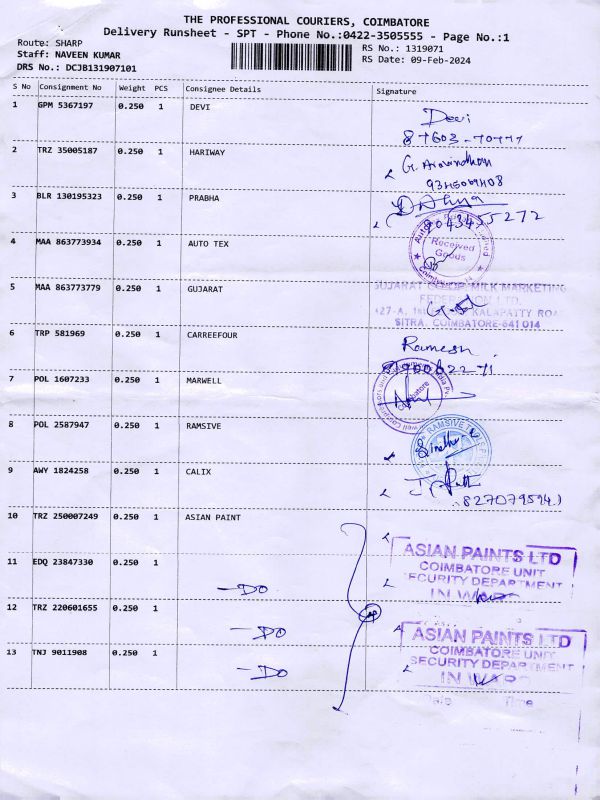 THE PROFESSIONAL COURIERS, COIMBATORE
Delivery Runsheet - SPT - Phone No.:0422-3505555 - Page No.:1
Route: SHARP
Staff: NAVEEN KUMAR
DRS No.: DCJB131907101
RS No.: 1319071
RS Date: 09-Feb-2024
S No Consignment No Weight PCS Consignee Details Signature
1 GPM 5367197 0.250 1 DEVI
Devi
2 TRZ 35005187 0.250 1 HARIWAY
G. Aravindhan
3 BLR 130195323 0.250 1 PRABHA
8043455272
4 MAA 863773934 0.250 1 AUTO TEX
Received
Goods
5 MAA 863773779 0.250 1 GUJARAT
GUJARAT CO-OP. MILK MARKETING
FEDERATION LTD.
KALAPATTY ROAD
SITRA, COIMBATORE-641 014
6 TRP 581969 0.250 1 CARREEFOUR
Ramesh
7 POL 1607233 0.250 1 MARWELL
Coimbatore
8 POL 2587947 0.250 1 RAMSIVE
RAMSIVE
Sindhu
9 AWY 1824258 0.250 1 CALIX
10 TRZ 250007249 0.250 1 ASIAN PAINT
ASIAN PAINTS LTD
COIMBATORE UNIT
SECURITY DEPARTMENT
INWARD
11 EDQ 23847330 0.250 1 -DO
12 TRZ 220601655 0.250 1 -DO
ASIAN PAINTS LTD
COIMBATORE UNIT
SECURITY DEPARTMENT
INWARD
Date Time
13 TNJ 9011908 0.250 1 -DO